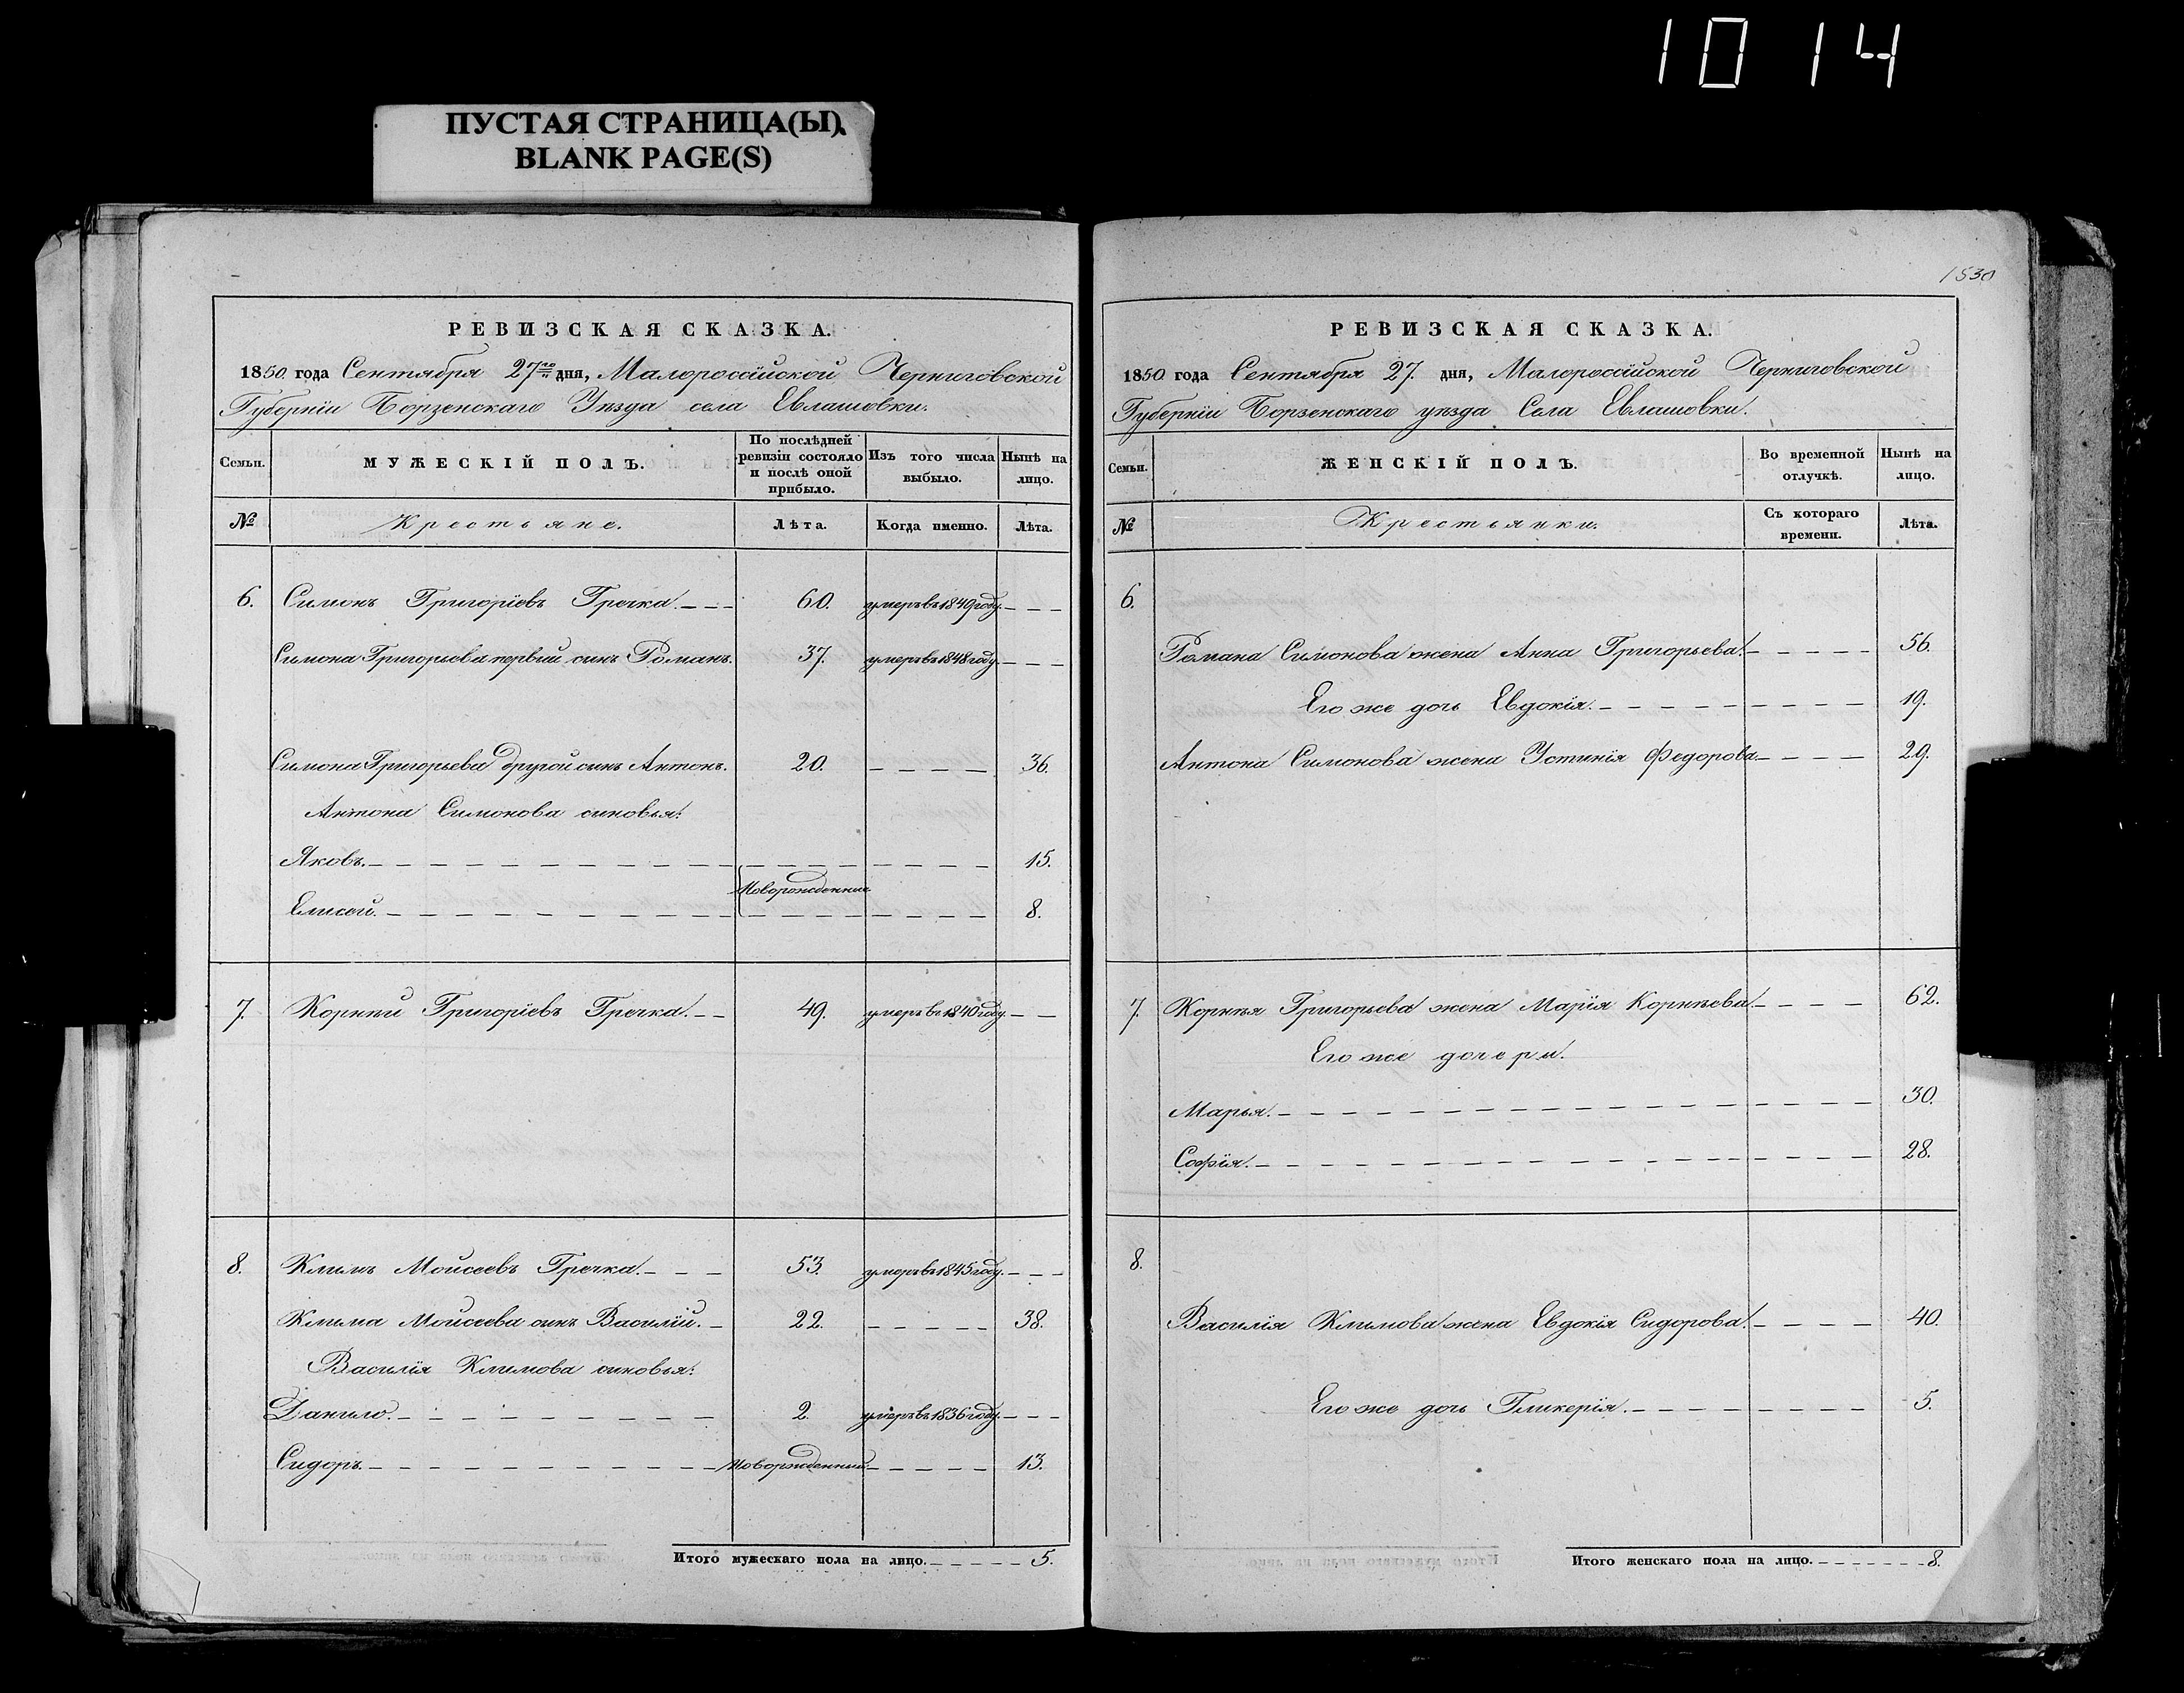 10 14
ПУСТАЯ СТРАНИЦА(Ы)
BLANK PAGE(S)
РЕВИЗСКАЯ СКАЗКА.
1850. года Сентября 27го дня, Малороссійской Черниговской
Губерніи Борзенскаго Уѣзда села Евлашовки.
Семьи.
МУЖЕСКІЙ ПОЛЪ.
По послѣдней ревизіи состояло и послѣ оной прибыло.
Изъ того числа выбыло.
Нынѣ на лицо.
№
Крестьяне.
Лѣта.
Когда именно.
Лѣта.
6. Симонъ Григоріевъ Гречка. 60. умеръ въ 1849 году.
Симона Григорьева первый сынъ Романъ. 37. умеръ въ 1848 году.
Симона Григорьева другой сынъ Антонъ. 20. 36.
Антона Симонова сыновья:
Яковъ. 15.
Новорожденные
Елисей. 8.
7. Корнѣй Григоріевъ Гречка. 49. умеръ въ 1840 году.
8. Климъ Моисеевъ Гречка. 53. умеръ въ 1845 году.
Клима Моисеева сынъ Василій. 22. 38.
Василія Климова сыновья:
Данило. 2. умеръ въ 1836 году.
Сидоръ. Новорожденный. 13.
Итого мужескаго пола на лицо. 5.
1530
РЕВИЗСКАЯ СКАЗКА.
1850 года Сентября 27. дня, Малороссійской Черниговской
Губерніи Борзенскаго уѣзда Села Евлашовки.
Семьи.
ЖЕНСКІЙ ПОЛЪ.
Во временной отлучкѣ.
Нынѣ на лицо.
№
Крестьянки.
Съ котораго времени.
Лѣта.
6.
Романа Симонова жена Анна Григорьева. 56.
Его же дочь Евдокія. 19.
Антона Симонова жена Устинія Федорова 29.
7. Корнѣя Григорьева жена Марія Корнѣева. 62.
Его же дочери.
Марья. 30.
Софія. 28.
8.
Василія Климова жена Евдокія Сидорова. 40.
Его же дочь Гликерія. 5.
Итого женскаго пола на лицо. 8.